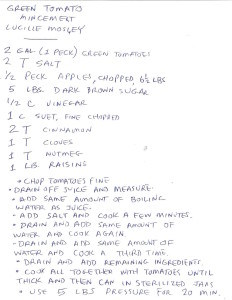 GREEN TOMATO
MINCEMEAT
LUCILLE MOSLEY
2 GAL (1 PECK) GREEN TOMATOES
2 T SALT
1/2 PECK APPLES, CHOPPED, 6 1/2 LBS
5 LBS DARK BROWN SUGAR
1/2 C VINEGAR
1 C SUET, FINE CHOPPED
2 T CINNAMON
1 T CLOVES
1 T NUTMEG
1 LB. RAISINS
• CHOP TOMATOES FINE
• DRAIN OFF JUICE AND MEASURE.
• ADD SAME AMOUNT OF BOILING
WATER AS JUICE.
• ADD SALT AND COOK A FEW MINUTES.
• DRAIN AND ADD SAME AMOUNT OF
WATER AND COOK AGAIN.
• DRAIN AND ADD SAME AMOUNT OF
WATER AND COOK A THIRD TIME.
• DRAIN AND ADD REMAINING INGREDIENTS.
• COOK ALL TOGETHER WITH TOMATOES UNTIL
THICK AND THEN CAN IN STERILIZED JARS
• USE 5 LBS PRESSURE FOR 20 MIN.